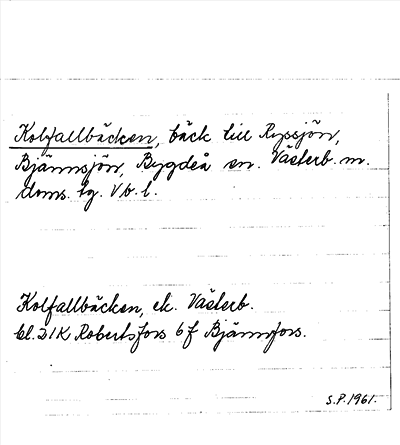 Kolfallbäcken, bäck till Ryssjön,
Bjännsjön, Bygdeå sn. Västerb. m.
doms. lg. Vb. l.
Kolfallbäcken, ek. Västerb.
bl. 21K Robertsfors 6 f Bjännfors.
S.P. 1961.